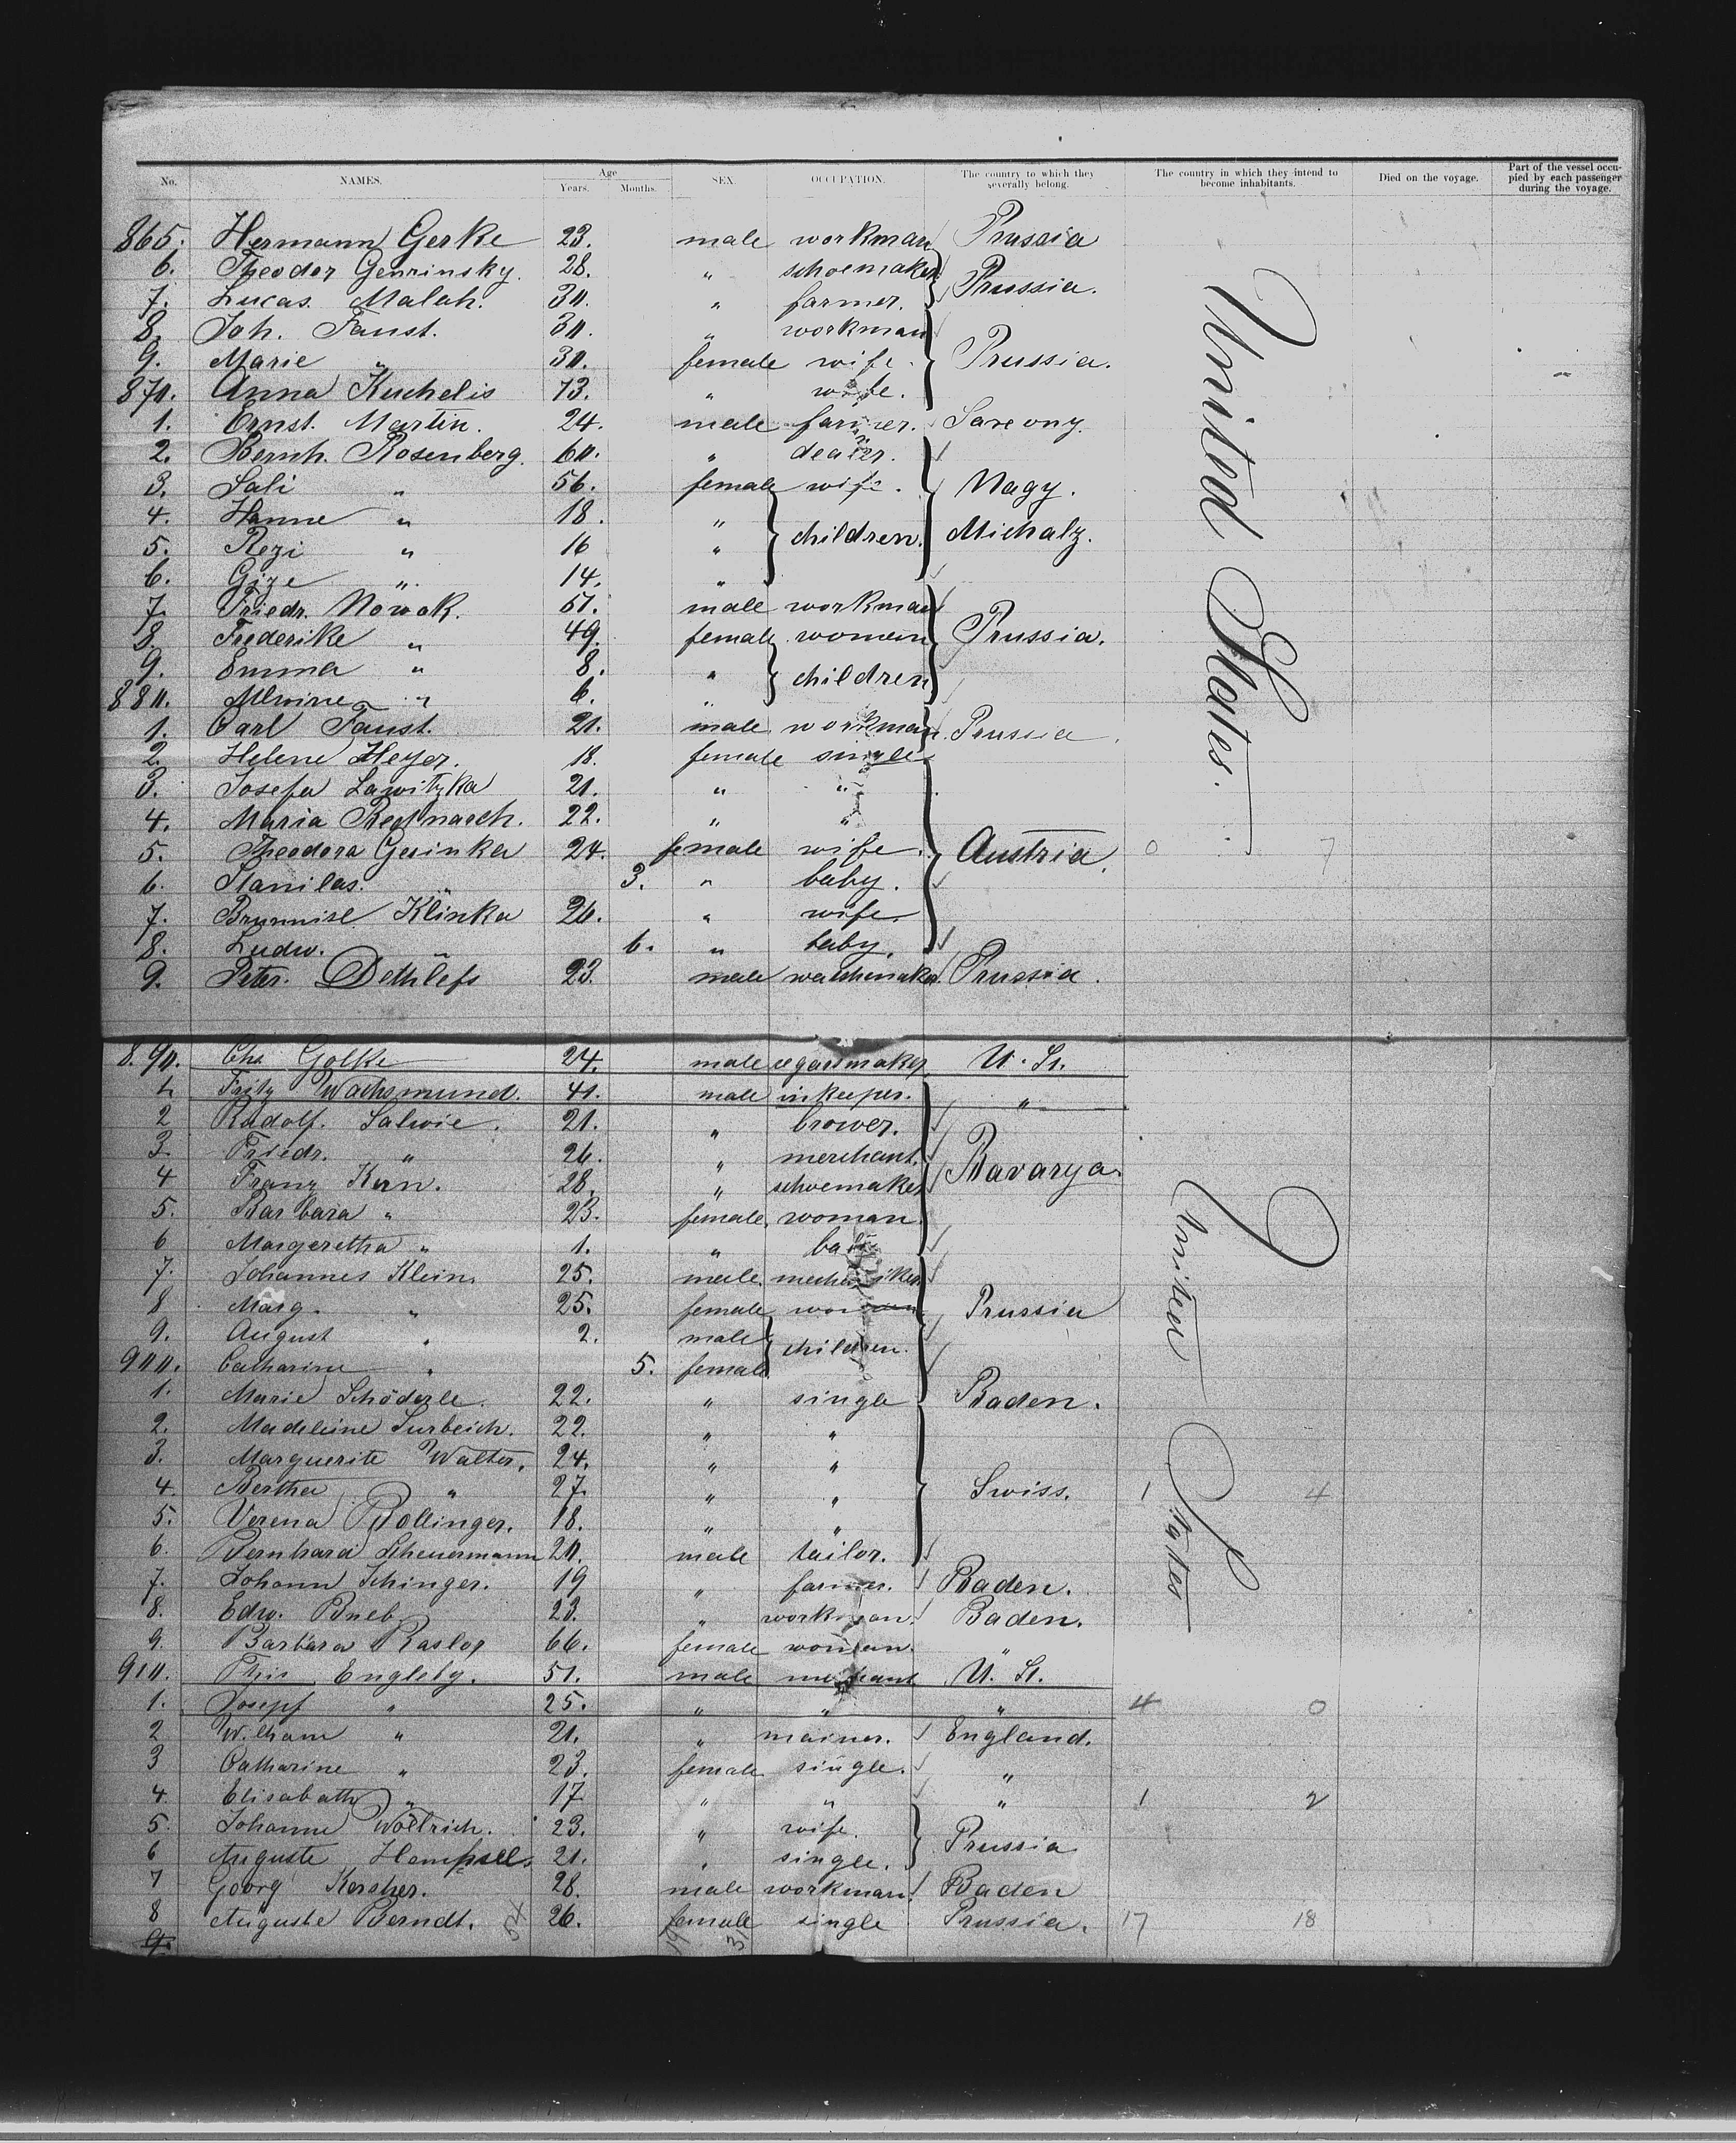 No. NAMES. Age Years. Months. SEX. OCCUPATION. The country to which they severally belong. The country in which they intend to become inhabitants. Died on the voyage. Part of the vessel occupied by each passenger during the voyage.
865. Hermann Gerke 23. male workman Prussia
6. Theodor Genrinsky. 28. " schoemaker Prussia.
7. Lucas. Malah. 30. " farmer.
8. Joh. Faust. 30. " workman
9. Marie " 30. female wife Prussia.
870. Anna Kuchelis 73. " wife.
1. Ernst. Martin. 24. male farmer. Saxeony.
2. Bernh. Rosenberg. 60. " dealer.
3. Sali " 56. female wife. Nagy.
4. Hanne " 18. " children. Michalz.
5. Rezi " 16 "
6. Gize " 14. "
7. Friedr. Nowak. 51. male workman
8. Frederike " 49. female woman Prussia.
9. Emma " 8. " children
880. Alwine " 6. "
1. Carl Faust. 21. male workman. Prussia.
2. Helene Heyer. 18. female single
3. Josefa Lawitzka 21. " "
4. Maria 22. " "
5. Theodora Gerinka 24. female wife. Austria. 0 7
6. Stanilas. " 3. " baby.
7. Klinka 26. " wife.
8. Ludw. " 6. " baby.
9. Peter. Dethlefs 23. male watchmaker. Prussia.
United States.
8.90. Chs Golke 24. male cegarrmaker U. St.
1. Fritz Wachsmund. 41. male inkeeper. "
2 Rudolf. Salwie. 21. " brower.
3. Friedr. " 26. " merchant. Bavarya.
4 Franz Kern. 28. " schoemaker
5. Barbara " 23. female. woman.
6 Margeretha " 1. " baby
7. Johannes Klein. 25. male.
8 Marg. " 25. female woman Prussia
9. August " 2. male children.
900. Catharine " 5. female
1. Marie Schöderle. 22. " single Baden.
2. Madeleine Surbeich. 22. " "
3. Marguerite Walter. 24. " "
4. Bertha " 27. " " Swiss. 1 4
5. Verena Bollinger. 18. " "
6. Bernhard Scheuermann 20. male tailor.
7. Johann Schinger. 19 " farmer. Baden.
8. Edw. Bueb. 23. " workman. Baden.
9. Barbara Rasloz 66. female woman. "
910. Engleby. 51. male merchant U. St.
1. Josepf " 25. " " " 4 0
2 William " 21. " mainer. England.
3 Catharine " 23. female single. "
4. Elisabath " 17 " " " 1 2
5. Johanne Wöllrich. 23. " wife.
6 Auguste Hempsell. 21. " single. Prussia
7 Georg Kercher. 28. male workman. Baden
8 Auguste Berndt. 26. female single Prussia. 17 18
9. 54 19 31
United States